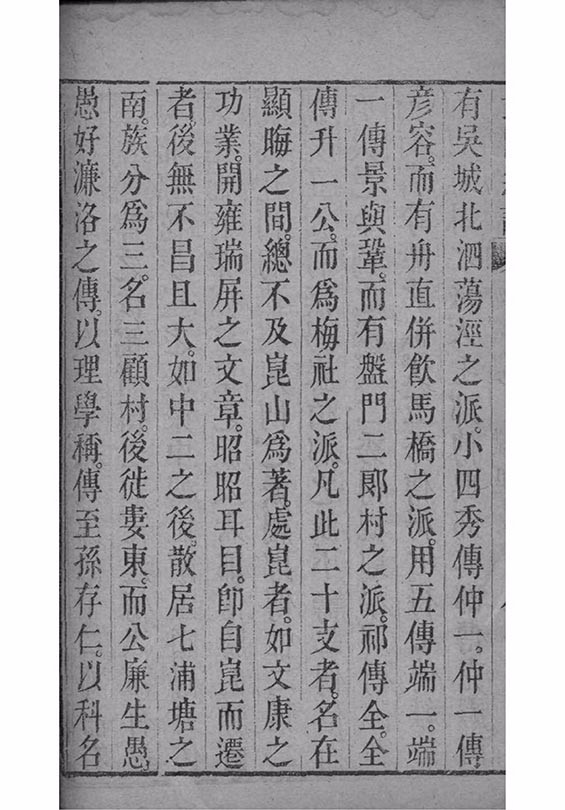 有吳城北泗蕩涇之派。小四秀傳仲一。仲一傳
彥容。而有甪直併飮馬橋之派。用五傳端一。端
一傳景與鞏。而有盤門二郞村之派。祁傳全。全
傳升一公。而爲梅社之派。凡此二十支者。名在
顯晦之間。總不及崑山爲著。處崑者。如文康之
功業。開雍瑞屏之文章。昭昭耳目。卽自崑而遷
者。後無不昌且大。如中二之後。散居七浦塘之
南。族分爲三。名三顧村。後徙婁東。而公廉生愚。
愚好濂洛之傳。以理學稱。傳至孫存仁。以科名